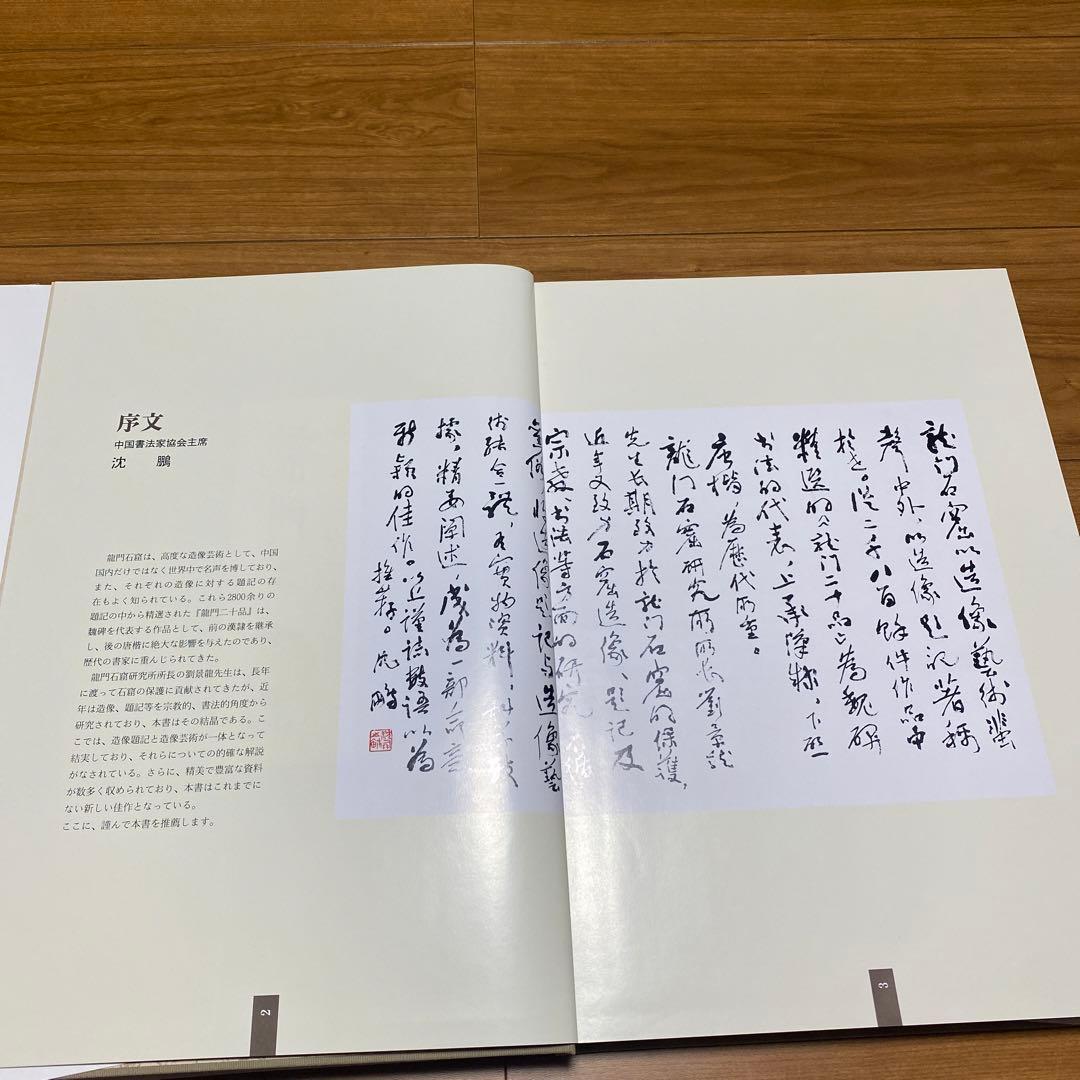 序文
中国書法家協会主席
沈 鵬
龍門石窟は、高度な造像芸術として、中国
国内だけではなく世界中で名声を博しており、
また、それぞれの造像に対する題記の存
在もよく知られている。これら2800余りの
題記の中から精選された『龍門二十品』は、
魏碑を代表する作品として、前の漢隷を継承
し、後の唐楷に絶大な影響を与えたのであり、
歴代の書家に重んじられてきた。
龍門石窟研究所所長の劉景龍先生は、長年
に渡って石窟の保護に貢献されてきたが、近
年は造像、題記等を宗教的、書法的角度から
研究されており、本書はその結晶である。こ
こでは、造像題記と造像芸術が一体となって
結実しており、それらについての的確な解説
がなされている。さらに、精美で豊富な資料
が数多く収められており、本書はこれまでに
ない新しい佳作となっている。
ここに、謹んで本書を推薦します。
龙门石窟以造像藝術蜚
聲中外，以造像题记著稱
於世。從二千八百餘件作品中
精选的《龙门二十品》為魏碑
书法的代表，上承漢隸，下啟
唐楷，為歷代所重。
龍门石窟研究所所长劉景龙
先生长期致力於龙门石窟的保護，
近年又致力石窟造像、题记及
宗教、书法等方面的研究
造像题记与造像藝
術结合一談，有實物资料，
據，精要阐述，成為一部
新颖的佳作。以此谨誌数语以為
推荐。沈鹏
2
3